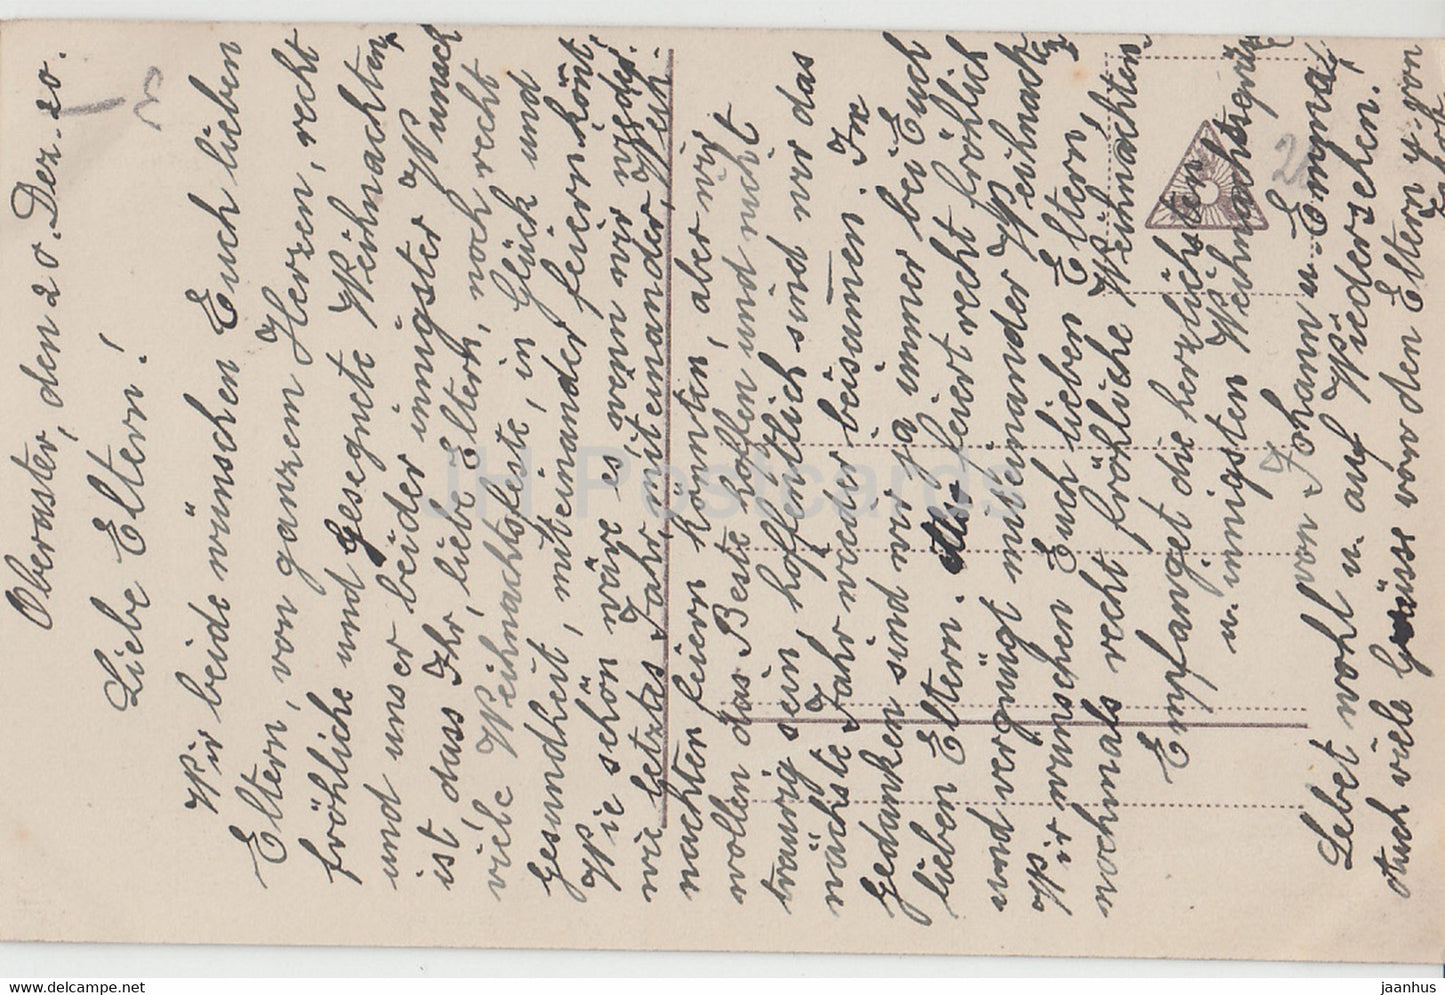 Oberaster, den 20. Dez. 20.
Liebe Eltern!
Wir beide wünschen Euch lieben
Eltern, von ganzem Herzen, recht
fröhliche und gesegnete Weihnachten,
und unser beider innigster Wunsch
ist, dass Ihr, liebe Eltern, noch recht
viele Weihnachtsfeste, in Glück und
Gesundheit, miteinander feiern könt!
Wie schön wäre es wenn wir wieder
wie letztes Jahr, miteinander, Weih-
nachten feiern könnten, aber wir
wollen das Beste hoffen und nicht
traurig sein, hoffentlich sind wir das
nächste Jahr wieder beisamen. In
Gedanken sind wir ja immer bei Euch
lieben Eltern. feiert recht fröhlich
und vergnügt miteinander Weihnachten
Wir wünschen Euch lieben Eltern,
nochmals recht fröhliche Weihnachten.
Empfanget die herzlichsten
u. innigsten Weihnachtsgrüsse
von Johann u. Emma,
Lebet wohl u. auf Wiedersehen!
Auch viele Grüsse von den Eltern u. von
JH Postcards
www.jhpostcards.com
jaanhus